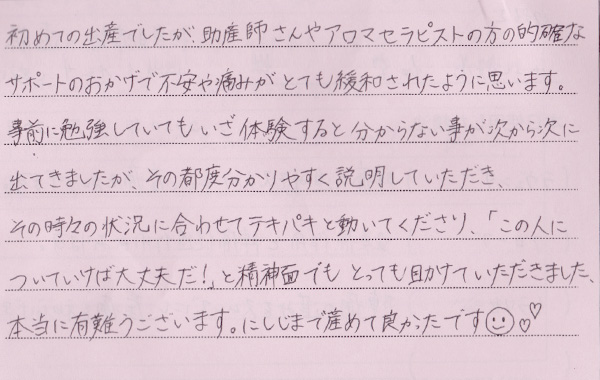 初めての出産でしたが、助産師さんやアロマセラピストの方の的確な
サポートのおかげで不安や痛みがとても緩和されたように思います。
事前に勉強していてもいざ体験すると分からない事が次から次に
出てきましたが、その都度分かりやすく説明していただき、
その時々の状況に合わせてテキパキと動いてくださり、「この人に
ついていけば大丈夫だ!」と精神面でもとっても助けていただきました、
本当に有難うございます。にしじまで産めて良かったです